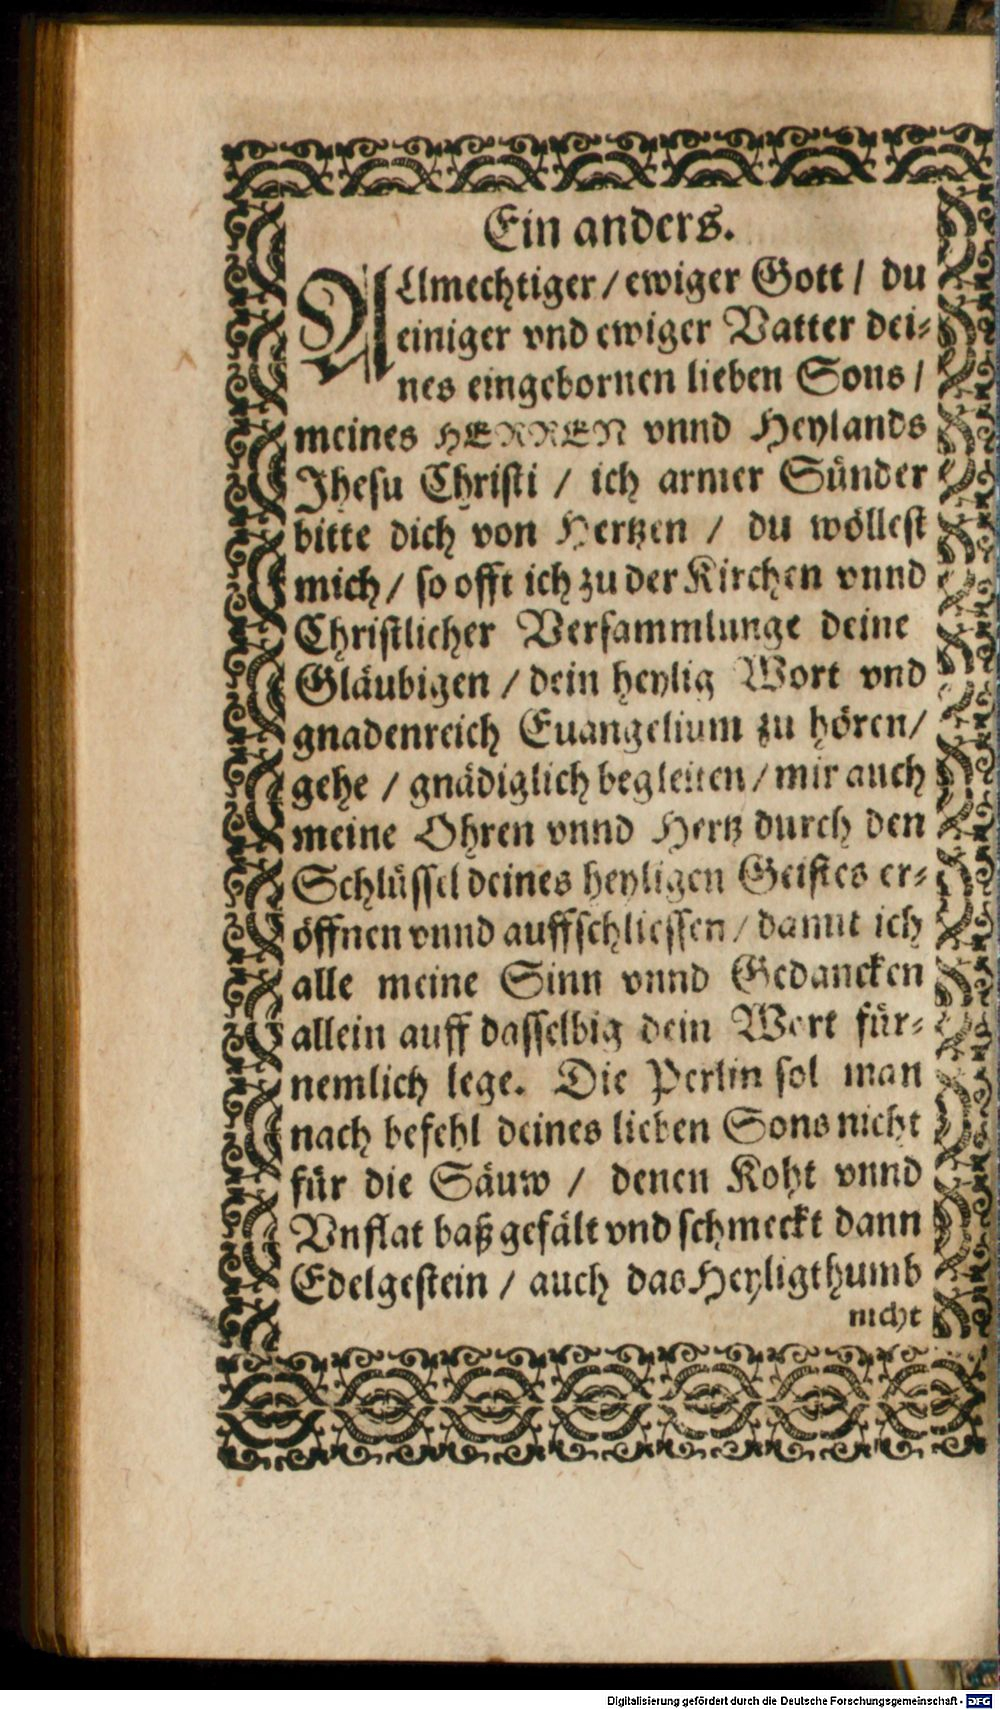 Ein anders.
ALlmechtiger / ewiger Gott / du
einiger vnd ewiger Vatter dei⸗
nes eingebornen lieben Sons /
meines HERREN vnnd Heylands
Jhesu Christi / ich armer Sünder
bitte dich von Hertzen / du wöllest
mich / so offt ich zu der Kirchen vnnd
Christlicher Versammlunge deine
Gläubigen / dein heylig Wort vnd
gnadenreich Euangelium zu hören /
gehe / gnädiglich begleiten / mir auch
meine Ohren vnnd Hertz durch den
Schlüssel deines heyligen Geistes er⸗
öffnen vnnd auffschliessen / damit ich
alle meine Sinn vnnd Gedancken
allein auff dasselbig dein Wort für⸗
nemlich lege. Die Perlin sol man
nach befehl deines lieben Sons nicht
für die Säuw / denen Koht vnnd
Vnflat baß gefält vnd schmeckt dann
Edelgestein / auch das Heyligthumb
nicht
Digitalisierung gefördert durch die Deutsche Forschungsgemeinschaft - DFG